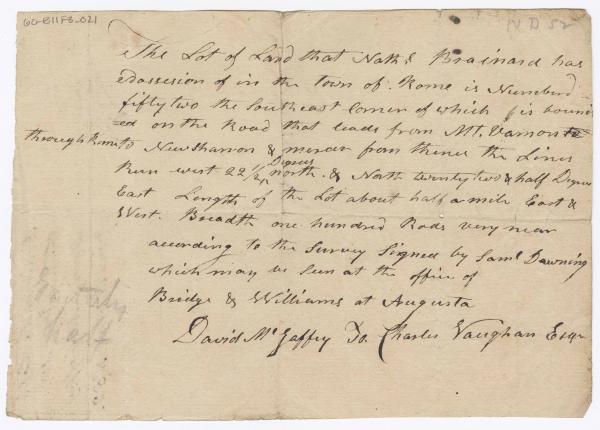 60-B11F3-021
N D 52
The Lot of Land that Nathl Brainard has
edossesion of in the Town of Rome is Numbird
fifty two the Southeast Corner of which is bound
=ed on the Road that leads from Mt. Varnon
through Rome to New sharron & mercer from thence the Lines
Run west 22 1/2 Degrees north & North twenty two & half Degrees
East Length of the Lot about half a mile East &
West. Breadth one hundred Rods very near
according to the Survey Signed by Saml Dawning
which may be Seen at the office of
Bridge & Williams at Augusta
David Mc Gaffey To. Charles Vaughan Esqr